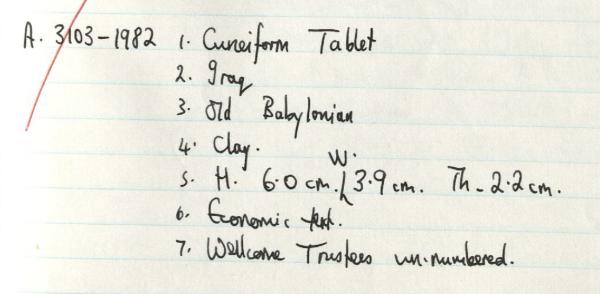 A. 3103-1982 1. Cuneiform Tablet
2. Iraq
3. Old Babylonian
4. Clay.
5. H. 6.0 cm. W. 3.9 cm. Th - 2.2 cm.
6. Economic text.
7. Wellcome Trustees un-numbered.